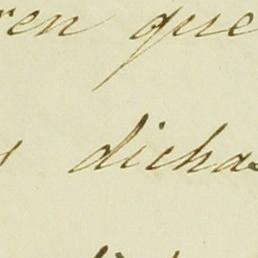 ren que
dicha